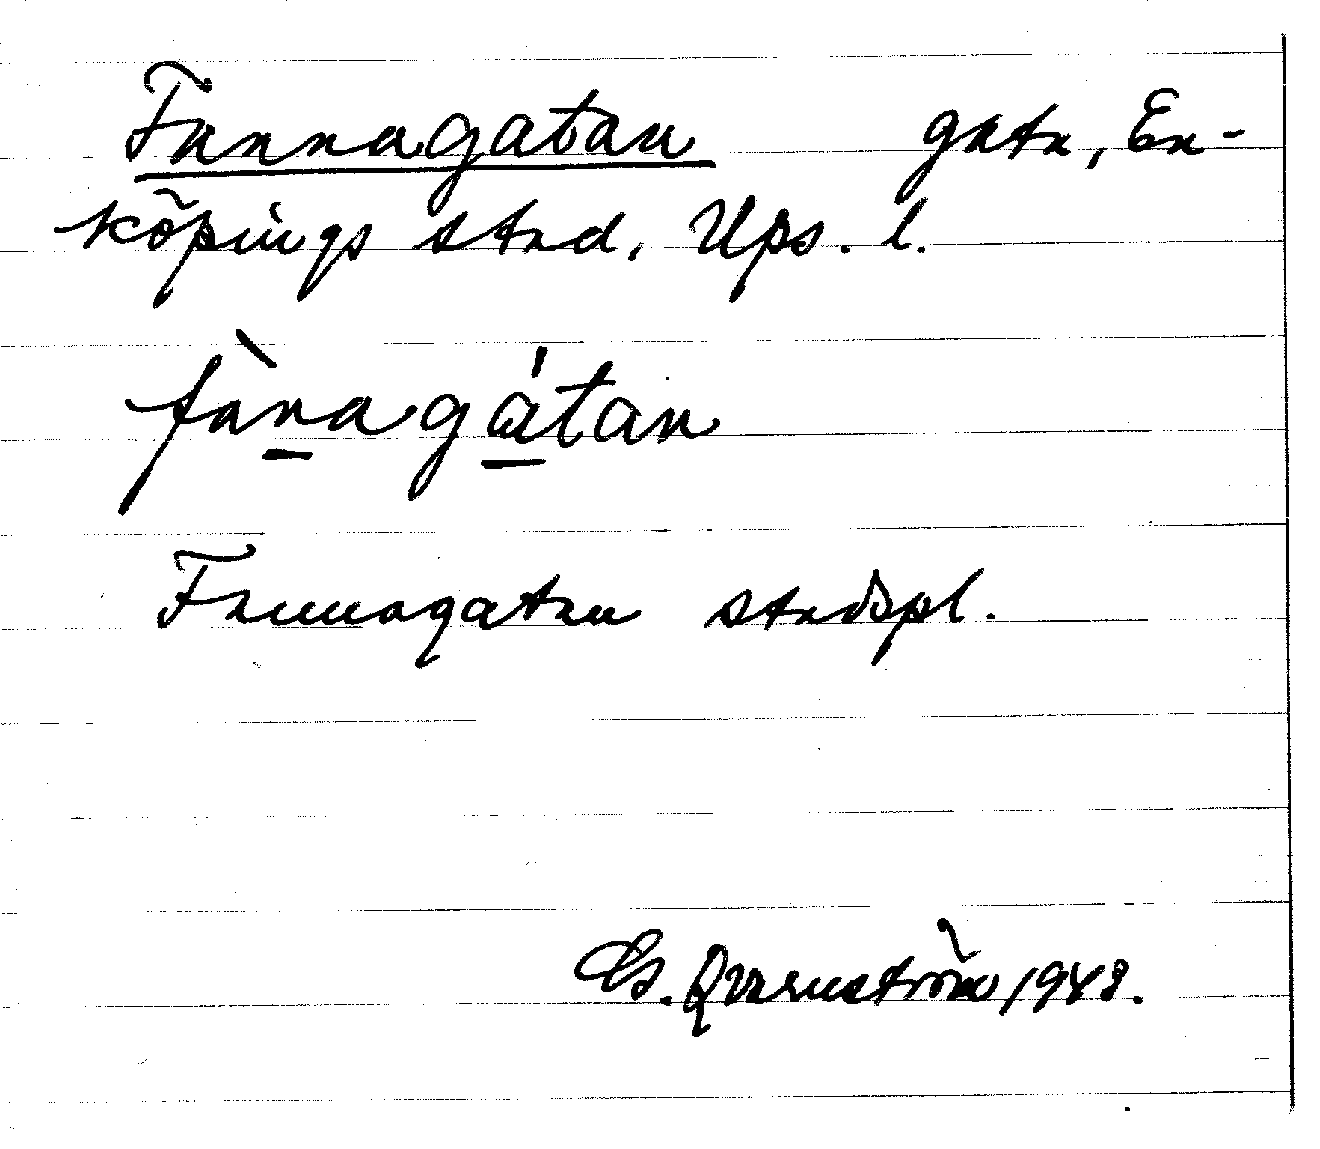 Fannagatan gata, En-
köpings stad, Ups. l.
fànagátan
Fannagatan stadspl.
G. Qvarnström 1943.